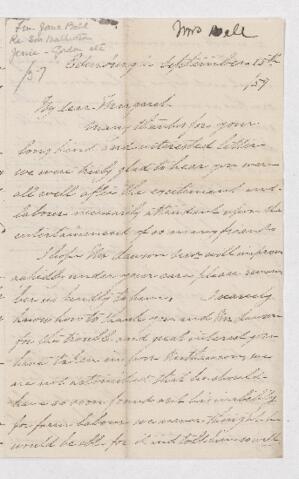 Mrs Bell
Frm Jane Bell
Re Tom
Jessie - Gordon etc
/57
Edenboing September 15th
/59
My dear Margaret
Many thanks for your
long kind and interested letter
we were truly glad to hear you were
all well after the excitement and
labour necessarily attendant upon the
entertainment of so many friends
I hope Mr Lawson has well improv
under your care please remem
ber us kindly to him, I scarcely
know how to thank you and Mr Lawson
for the trouble and great interest you
have taken in
are not astonished that he should
have so soon found out his inability
for farm labour we never thought he
would be able for it and told him so well